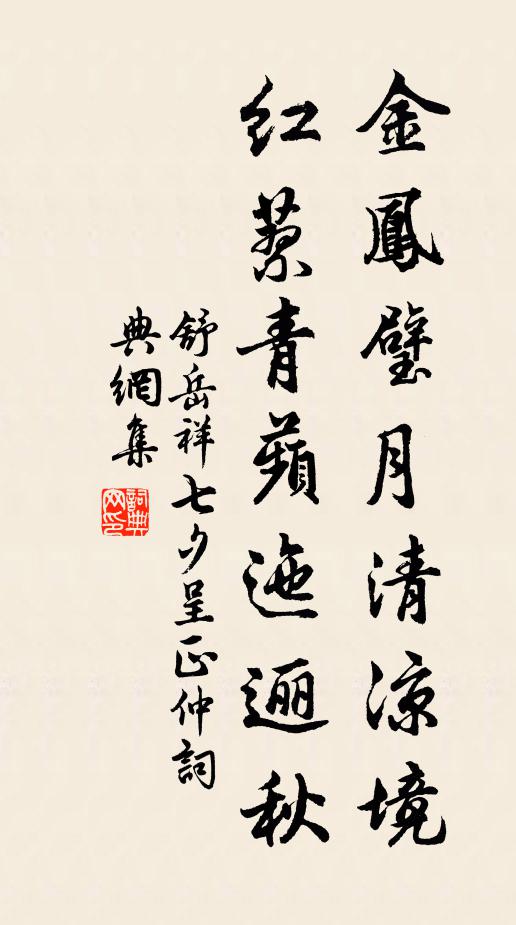 金鳳璧月清涼境
紅藜青蘋迤邐秋
舒岳祥七夕呈正仲詞
典網集
詞典
网印